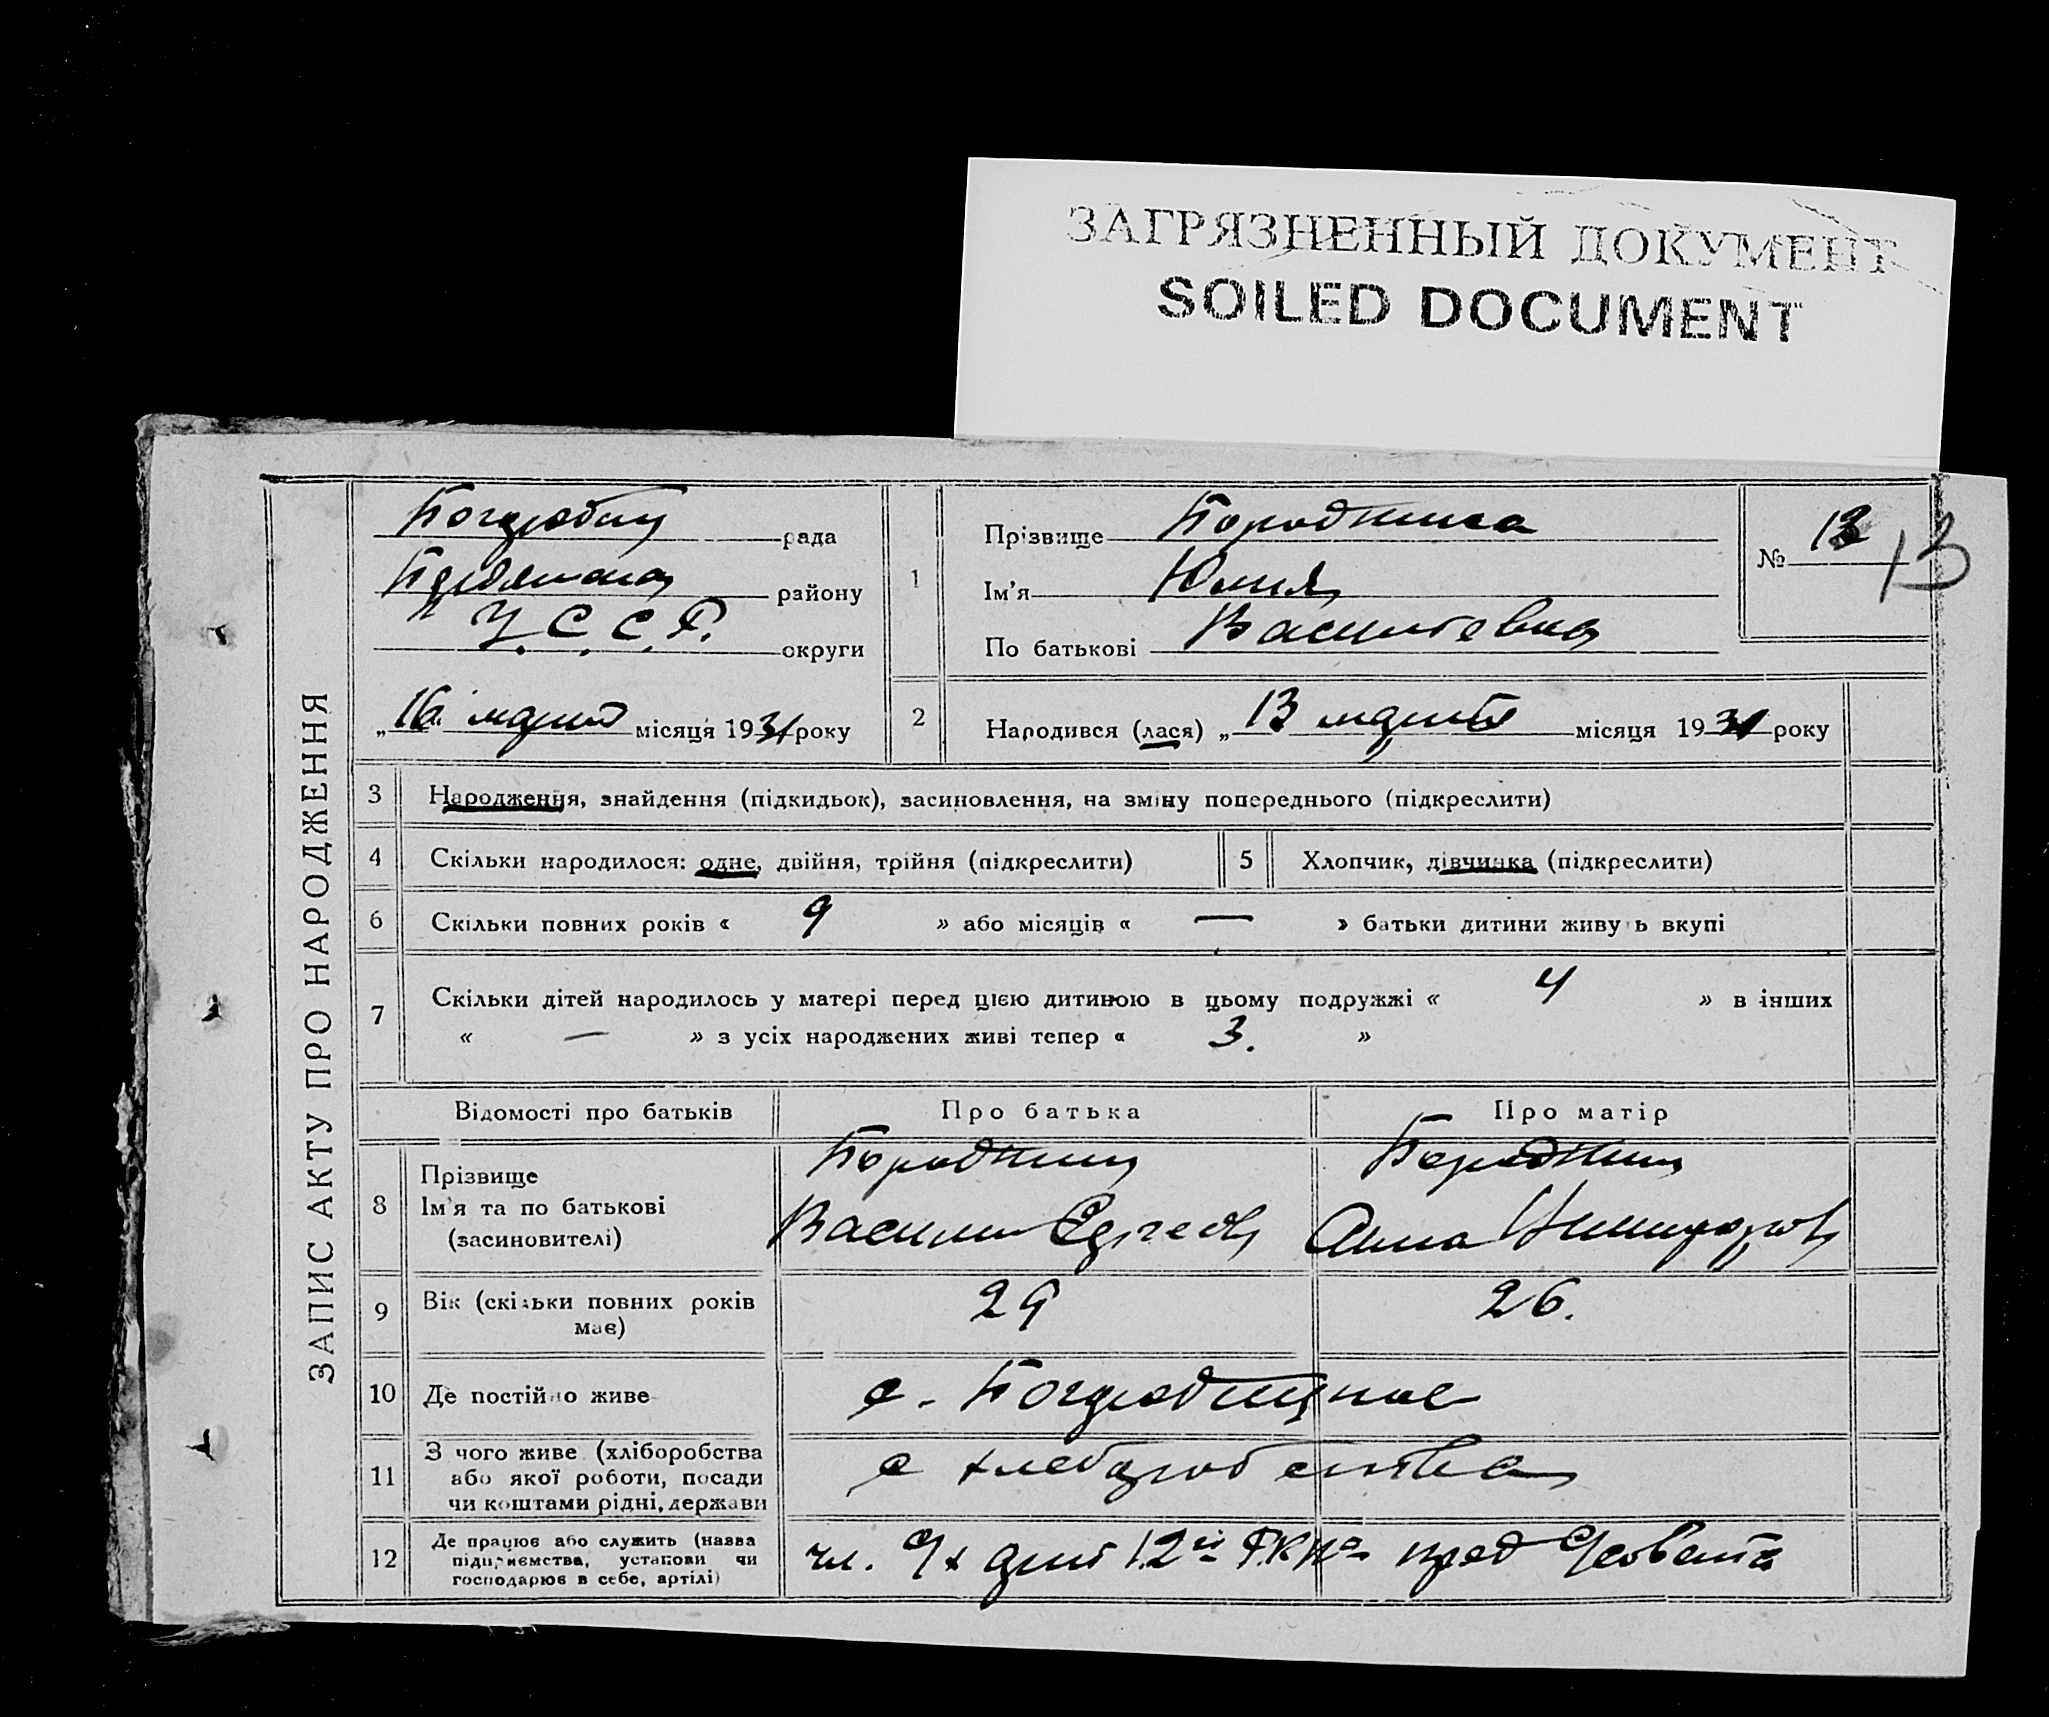 ЗАГРЯЗНЕННЫЙ ДОКУМЕНТ
SOILED DOCUMENT
ЗАПИС АКТУ ПРО НАРОДЖЕННЯ
рада
району
У. С. С. Р. округи
„16" марта місяця 1931 року
1
Прізвище
Ім'я Юлия
По батькові Василевна
№ 13
13
2 Народився (лася) „13 марта місяця 1931 року
3 Народження, знайдення (підкидьок), засиновлення, на зміну попереднього (підкреслити)
4 Скільки народилося: одне, двійня, трійня (підкреслити)
5 Хлопчик, дівчинка (підкреслити)
6 Скільки повних років « 9 » або місяців « — » батьки дитини живуть вкупі
7 Скільки дітей народилось у матері перед цією дитиною в цьому подружжі « 4 » в інших
« — » з усіх народжених живі тепер « 3. »
Відомості про батьків Про батька Про матір
8 Прізвище
Ім'я та по батькові
(засиновителі)
Василий
Анна
9 Вік (скільки повних років
має)
29 26.
10 Де постійно живе с.
11 З чого живе (хліборобства
або якої роботи, посади
чи коштами рідні, держави
с хлеборобства
12 Де працює або служить (назва
підприємства, установи чи
господарює в себе, артілі)
чл.